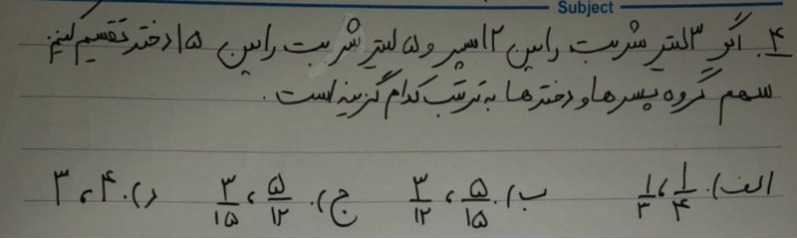 Subject
۴. اگر ۳ لیتر شربت را بین ۱۲ پسر و ۵ لیتر شربت را بین ۱۵ دختر تقسیم کنیم
سهم گروه پسرها و دخترها به ترتیب کدام گزینه است.
الف). ۱/۴ ، ۱/۳ ب). ۵/۱۵ ، ۳/۱۲ ج). ۵/۱۲ ، ۳/۱۵ د). ۴ ، ۳